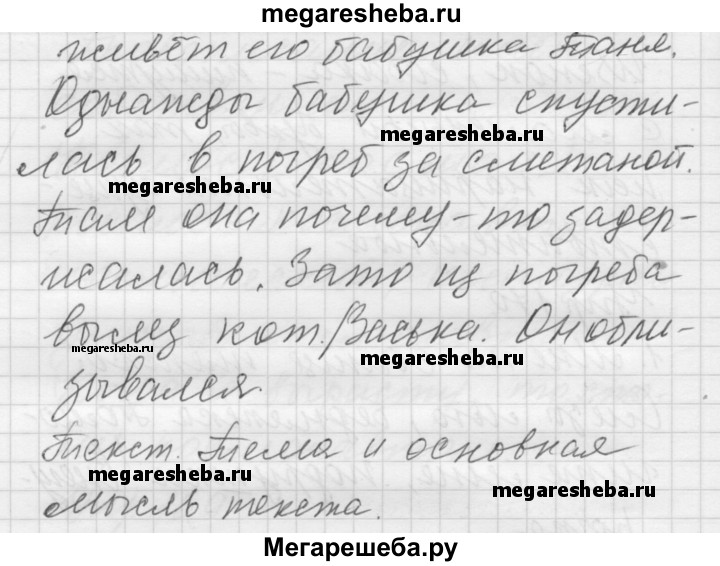 megaresheba.ru
живёт его бабушка Таня.
Однажды бабушка спусти-
megaresheba.ru
лась в погреб за сметаной.
megaresheba.ru
Там она почему-то задер-
жалась. Зато из погреба
вылез кот Васька. Он обли-
megaresheba.ru
megaresheba.ru
зывался.
Текст. Тема и основная
megaresheba.ru
мысль текста.
megaresheba.ru
Мегарешеба.ру